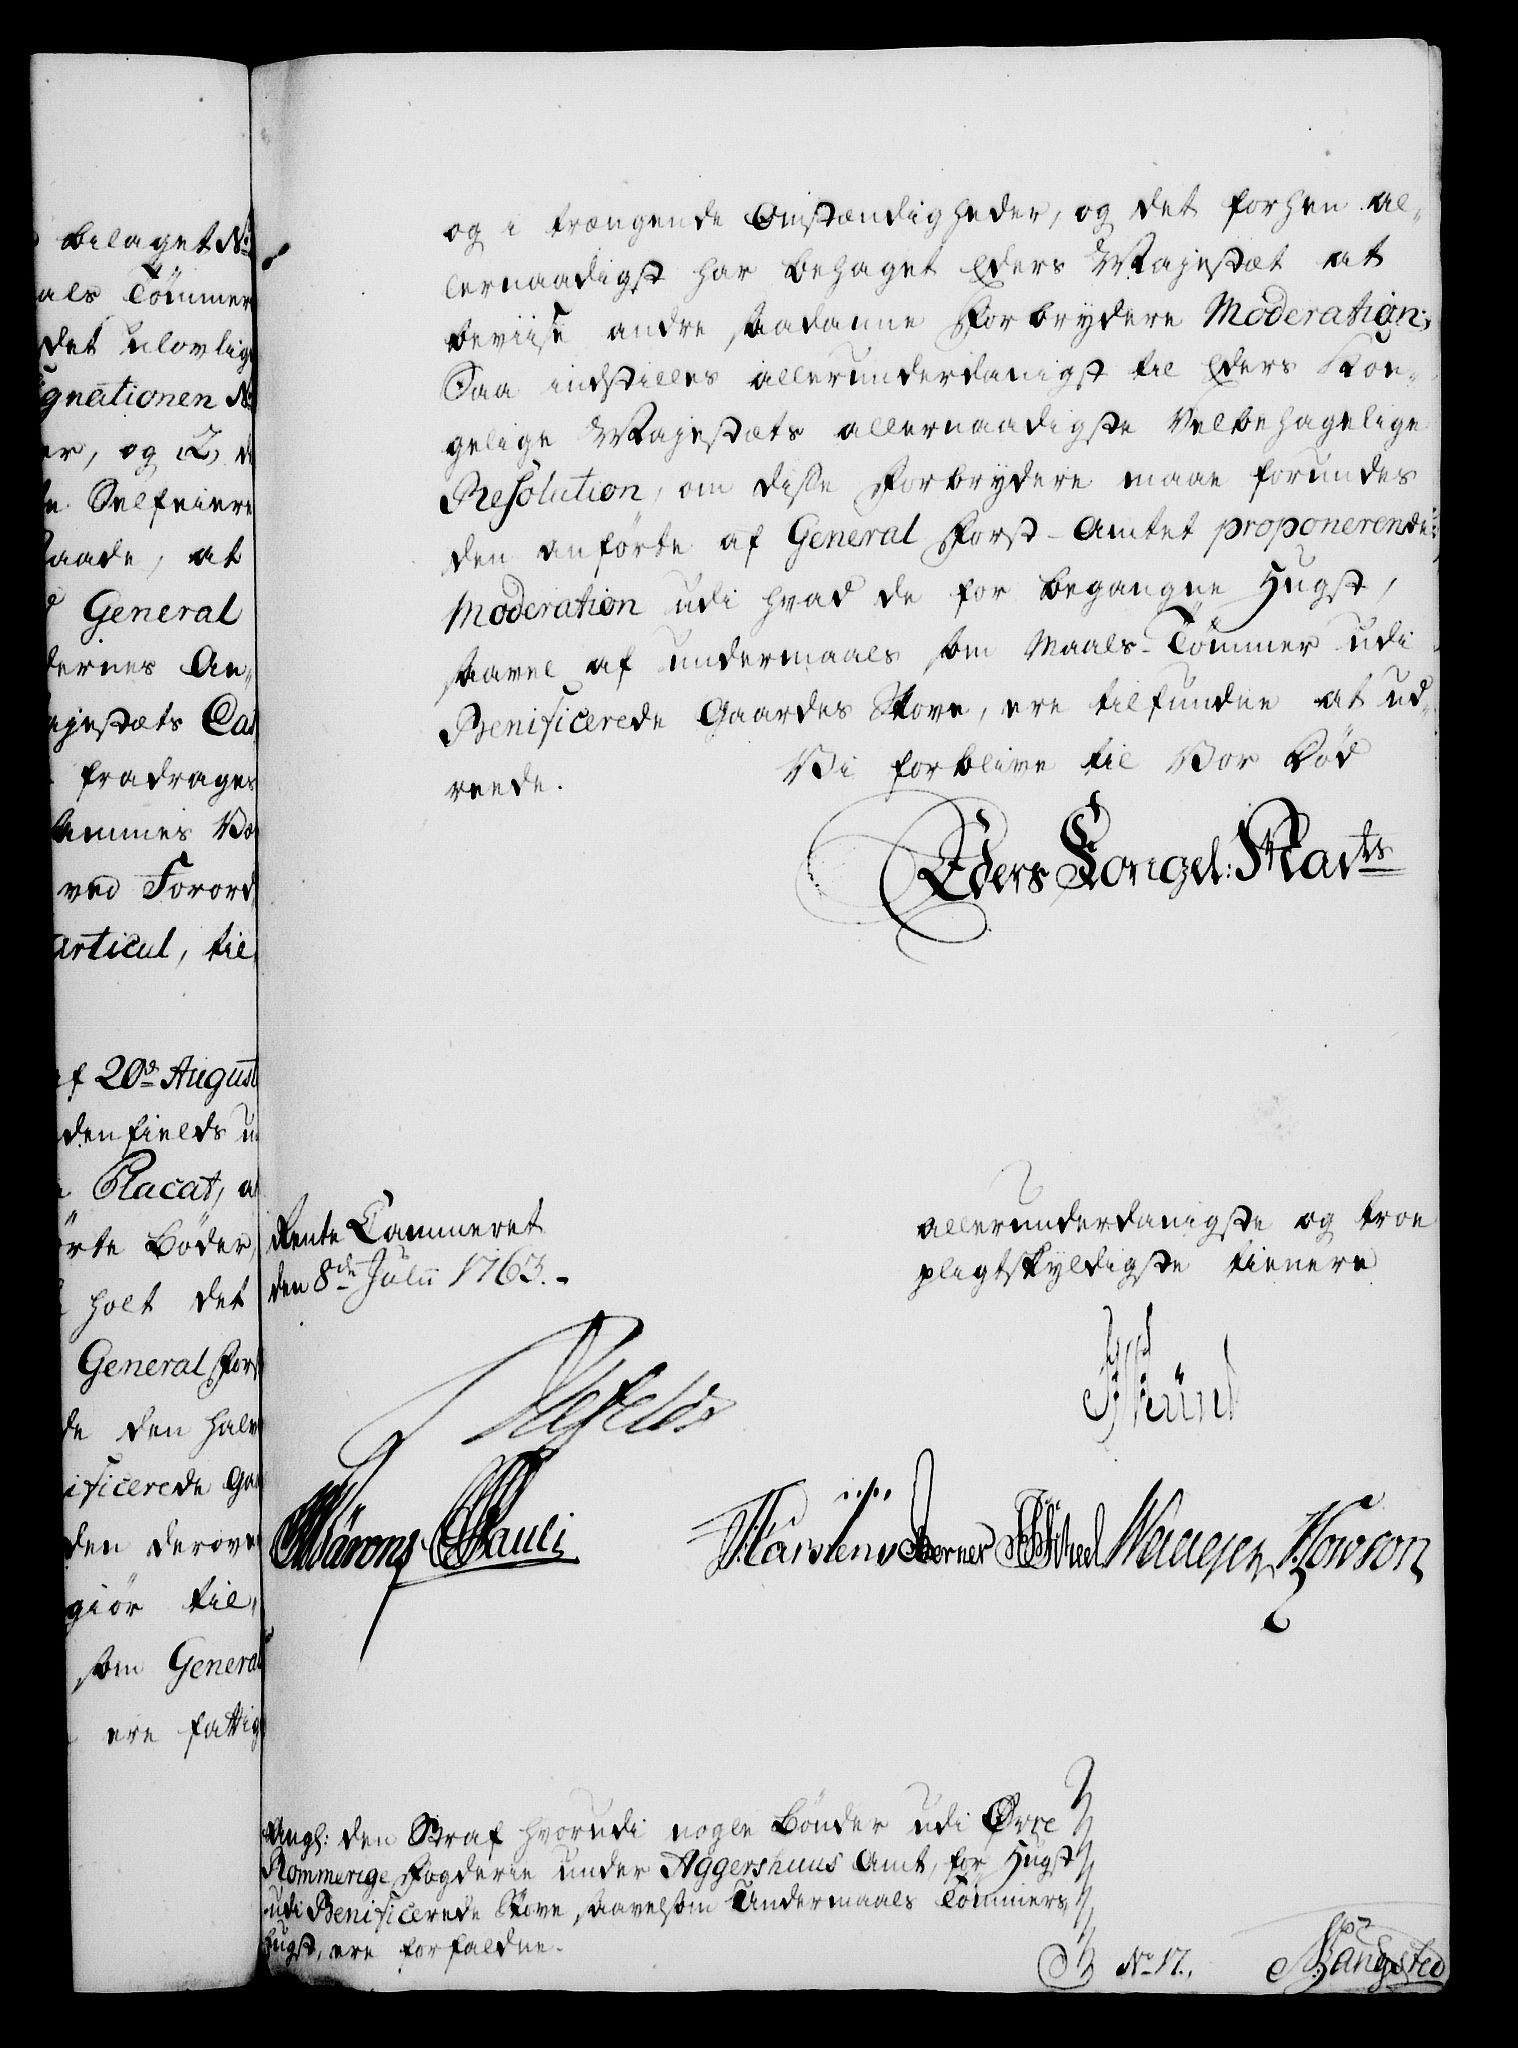 bilaget No
als Tömmer
det ulovlig
gnationen No
er, og 2, d
Selfeiere
aade, at
General
dernes An-
ajestæts Cas
fradrages
ammes Væ
ved Forord
articul, til
af 20de August
denfields u
Placat, a
örte Böder,
holt det
General Forst
de den halv
ificerede Gaa
den derove
giör til,
som General
ere fattig
og i trængende Omstændigheder, og det forhen al-
lernaadigst har behaget Eders Majestæt at
beviise andre saadanne Forbrydere Moderation;
Saa indstilles allerunderdanigst til Eders Kon-
gelige Majestæts allernaadigste Velbehagelige
Resolution, om disse Forbrydere maae forundes
den anförte af General Forst-Amtet proponerende
Moderation udi hvad de for begangne Hugst,
saavel af undermaals som Maals-Tömmer udi
Benificerede Gaardes Skove, ere tilfundne at ud-
reede. Vi forblive til Vor Död
Eders Kongel: Mayts
Rente Cammeret
den 8de Julii 1763.-
allerunderdanigste og troe
pligtskyldigste tienere
Pauli
Berner
Howson
Angl: den Straf hvorudi nogle Bönder udi Øvre
Rommerige Fogderie under Aggershuus Amt, for Hugst
udi Benificerede Skove, saavelsom Undermaals Tömmers
Hugst, ere forfaldne.
No 17.
Bangsted